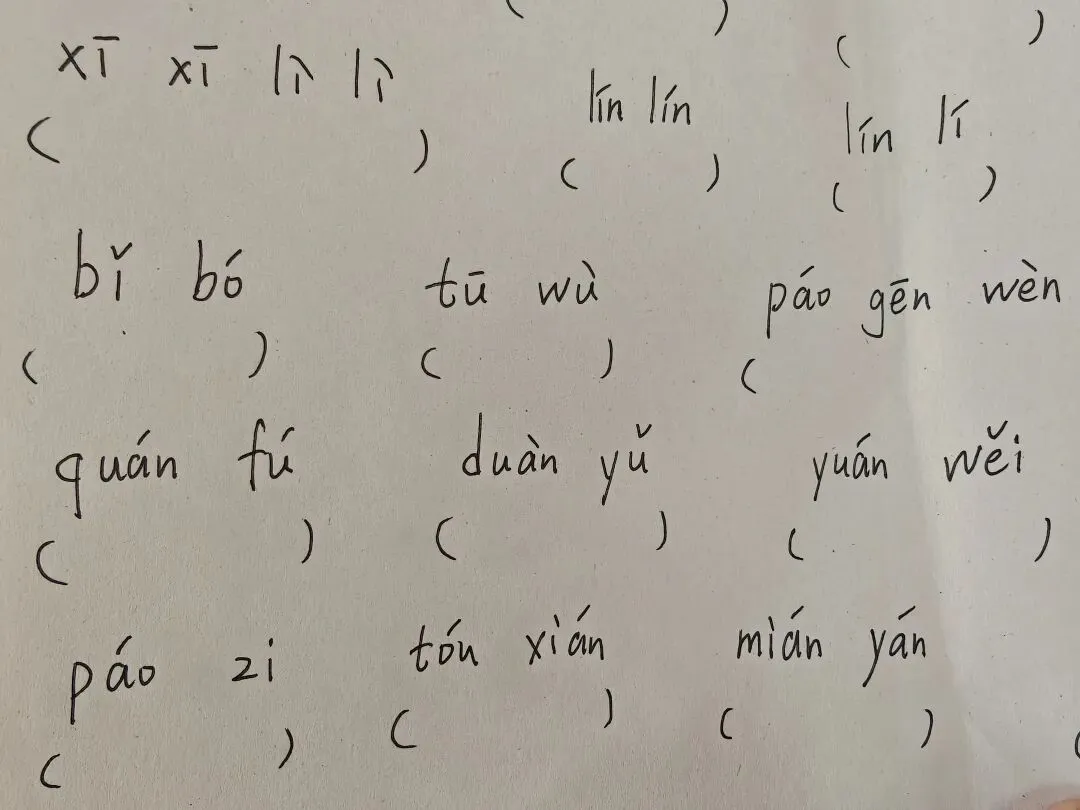 ( ) ( )
xī xī lì lì lín lín lín lí
( ) ( ) ( )
bǐ bó tū wù páo gēn wèn
( ) ( ) (
quán fú duàn yǔ yuán wěi
( ) ( ) ( )
páo zi tón xián mián yán
( ) ( ) ( ) (